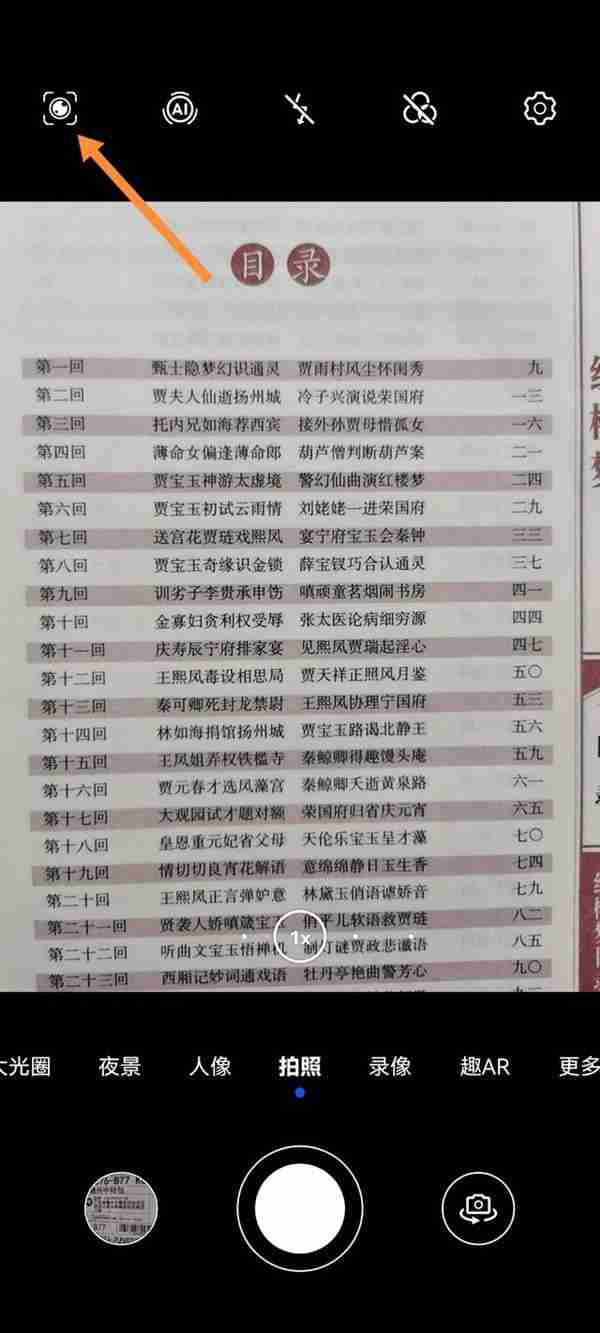 AI
目录
第一回 甄士隐梦幻识通灵 贾雨村风尘怀闺秀 九
第二回 贾夫人仙逝扬州城 冷子兴演说荣国府 一三
第三回 托内兄如海荐西宾 接外孙贾母惜孤女 一六
第四回 薄命女偏逢薄命郎 葫芦僧判断葫芦案 二一
第五回 贾宝玉神游太虚境 警幻仙曲演红楼梦 二四
第六回 贾宝玉初试云雨情 刘姥姥一进荣国府 二九
第七回 送宫花贾琏戏熙凤 宴宁府宝玉会秦钟 三三
第八回 贾宝玉奇缘识金锁 薛宝钗巧合认通灵 三七
第九回 训劣子李贵承申饬 嗔顽童茗烟闹书房 四一
第十回 金寡妇贪利权受辱 张太医论病细穷源 四四
第十一回 庆寿辰宁府排家宴 见熙凤贾瑞起淫心 四七
第十二回 王熙凤毒设相思局 贾天祥正照风月鉴 五〇
第十三回 秦可卿死封龙禁尉 王熙凤协理宁国府 五三
第十四回 林如海捐馆扬州城 贾宝玉路谒北静王 五六
第十五回 王凤姐弄权铁槛寺 秦鲸卿得趣馒头庵 五九
第十六回 贾元春才选凤藻宫 秦鲸卿夭逝黄泉路 六一
第十七回 大观园试才题对额 荣国府归省庆元宵 六五
第十八回 皇恩重元妃省父母 天伦乐宝玉呈才藻 七〇
第十九回 情切切良宵花解语 意绵绵静日玉生香 七四
第二十回 王熙凤正言弹妒意 林黛玉俏语谑娇音 七九
第二十一回 贤袭人娇嗔箴宝玉 俏平儿软语救贾琏 八二
1x
第二十二回 听曲文宝玉悟禅机 制灯谜贾政悲谶语 八五
第二十三回 西厢记妙词通戏语 牡丹亭艳曲警芳心 九〇
大光圈 夜景 人像 拍照 录像 趣AR 更多